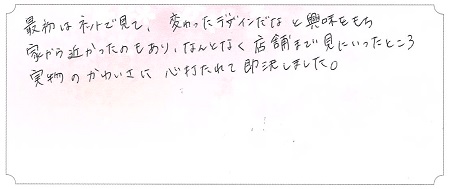 最初はネットで見て、変わったデザインだなと興味をもち
家から近かったのもあり、なんとなく店舗まで見にいったところ
実物のかわいさに心打たれて即決しました。